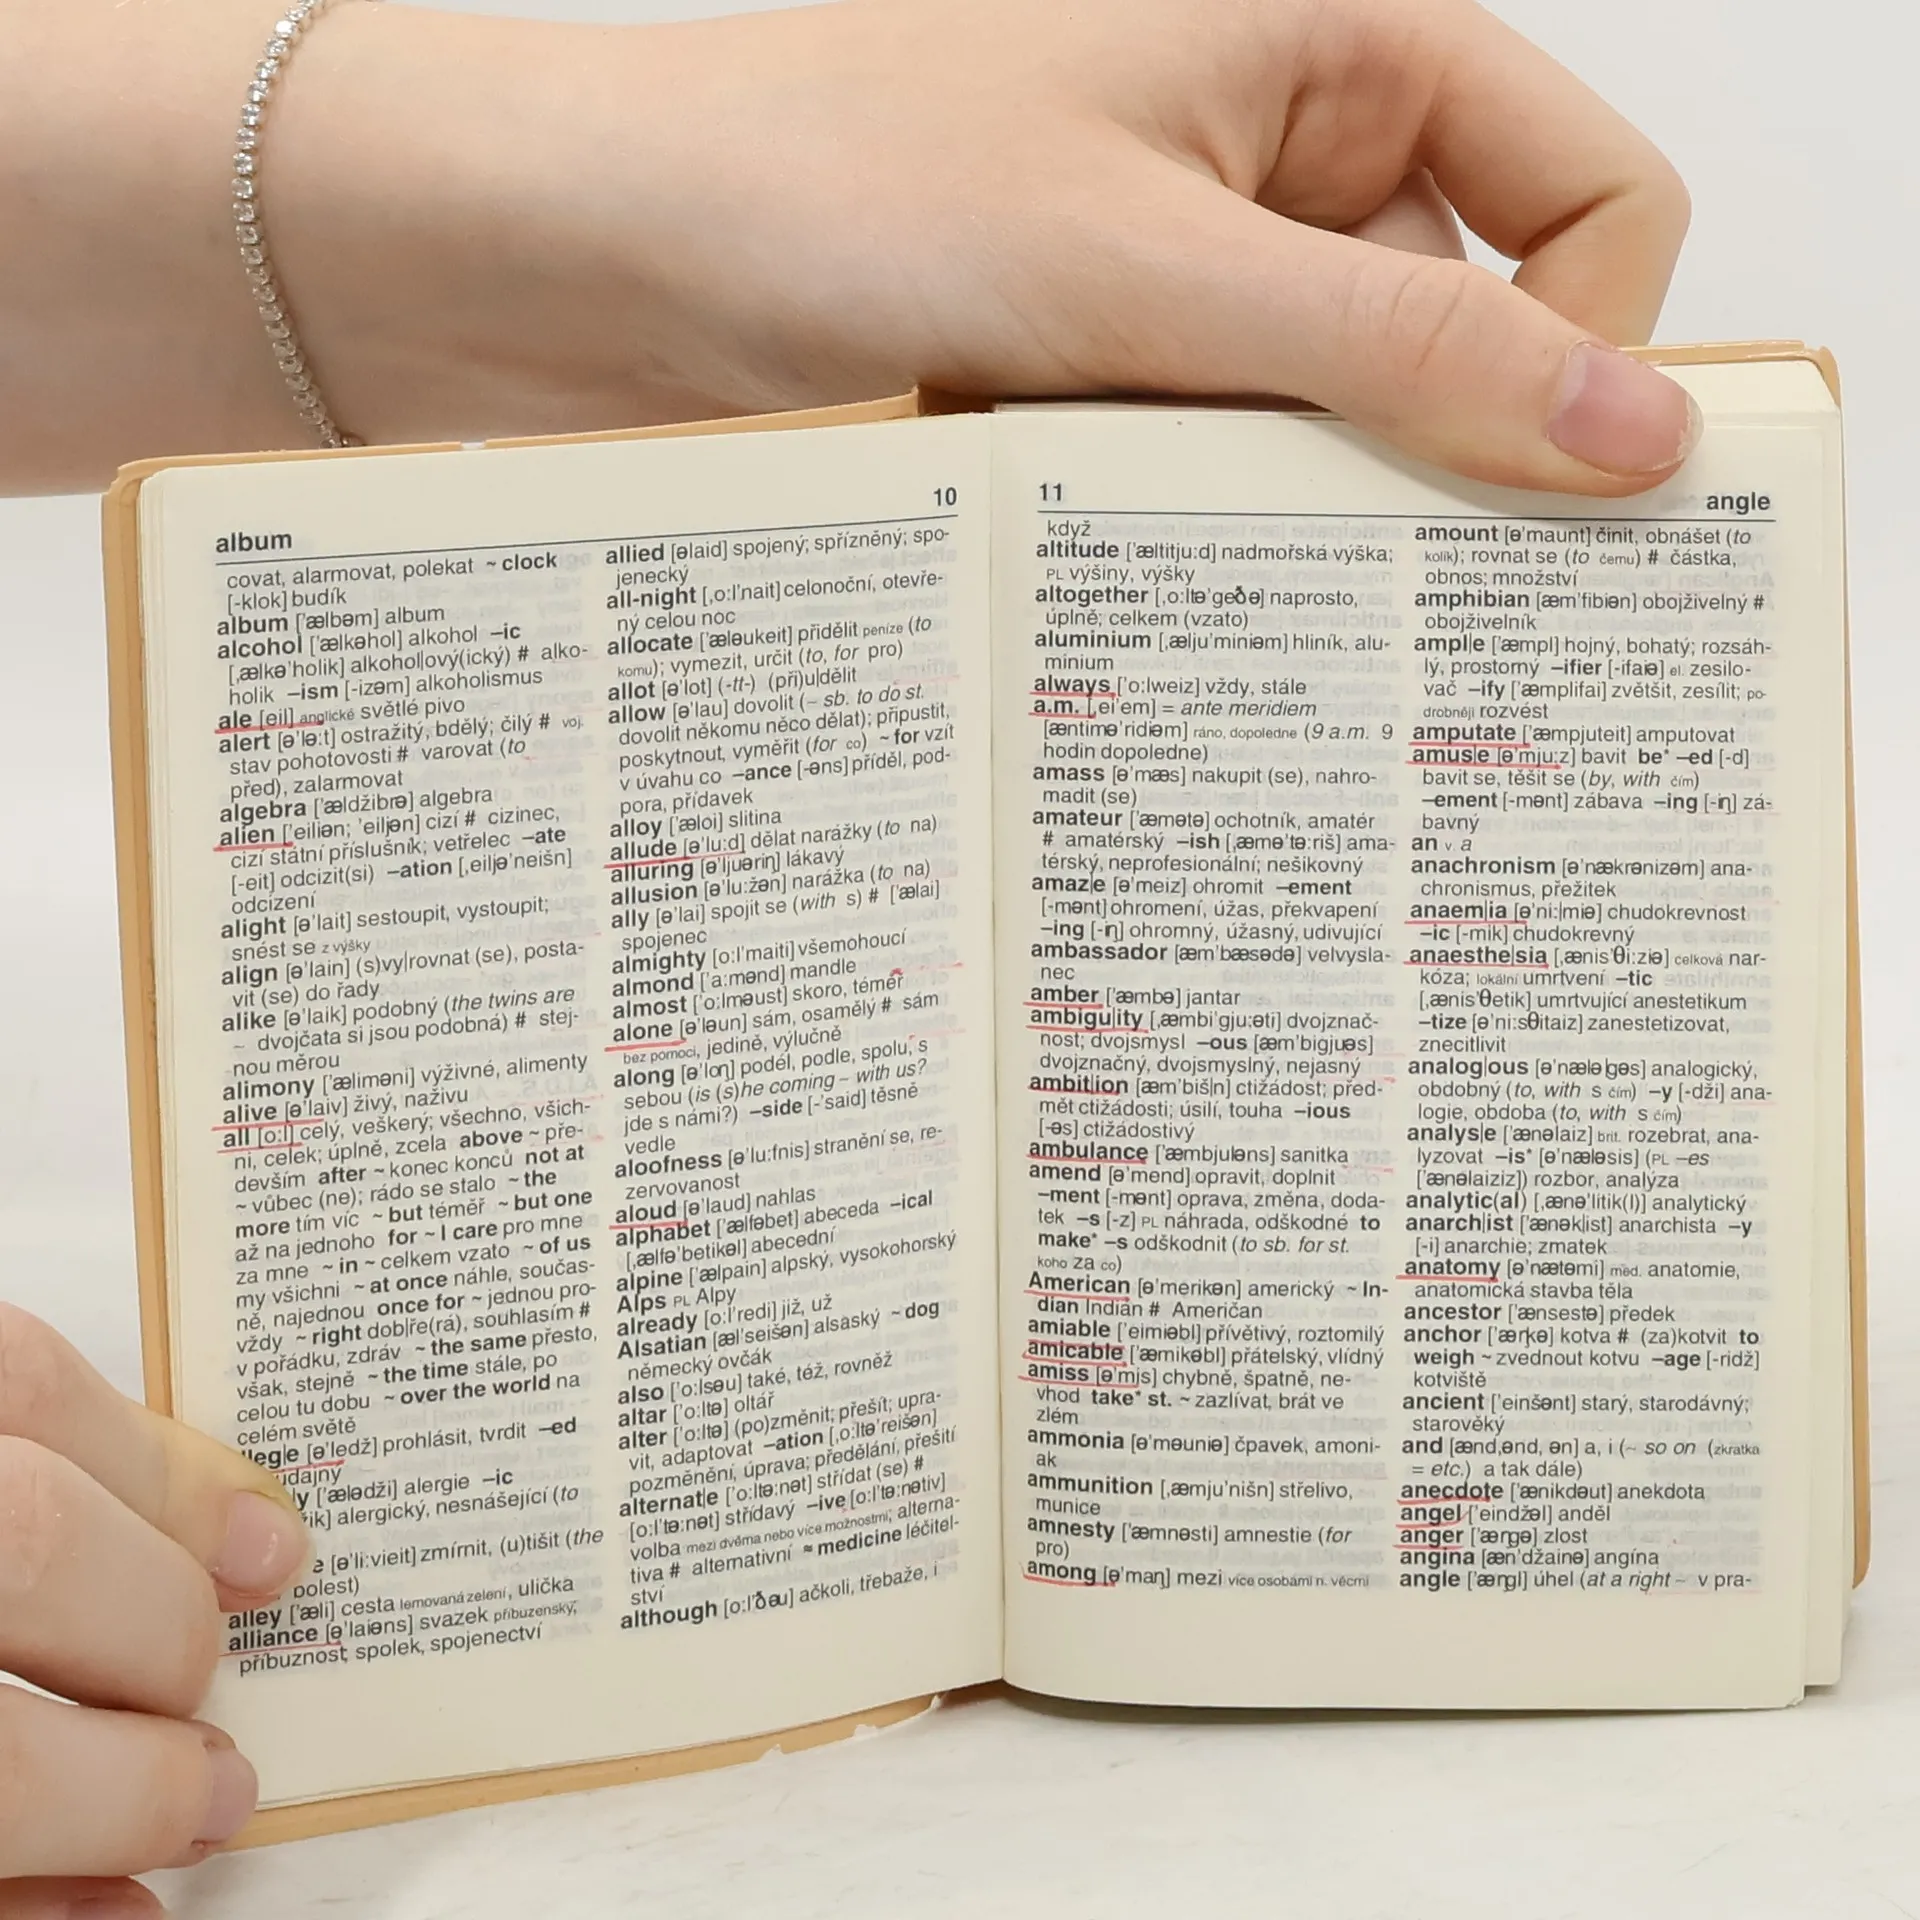 album 10
covat, alarmovat, polekat ~ clock
[-klok] budík
album ['ælbəm] album
alcohol ['ælkəhol] alkohol –ic
[ˌælkə'holik] alkohol|ový(ický) # alko-
holik –ism [-izəm] alkoholismus
ale [eil] anglické světlé pivo
alert [ə'lə:t] ostražitý, bdělý; čilý # voj.
stav pohotovosti # varovat (to
před), zalarmovat
algebra ['ældžibrə] algebra
alien ['eiliən; 'eiljən] cizí # cizinec,
cizí státní příslušník; vetřelec –ate
[-eit] odcizit(si) –ation [ˌeiljə'neišn]
odcizení
alight [ə'lait] sestoupit, vystoupit;
snést se z výšky
align [ə'lain] (s)vy|rovnat (se), posta-
vit (se) do řady
alike [ə'laik] podobný (the twins are
~ dvojčata si jsou podobná) # stej-
nou měrou
alimony ['æliməni] výživné, alimenty
alive [ə'laiv] živý, naživu
all [o:l] celý, veškerý; všechno, všich-
ni, celek; úplně, zcela above ~ pře-
devším after ~ konec konců not at
~ vůbec (ne); rádo se stalo ~ the
more tím víc ~ but téměř ~ but one
až na jednoho for ~ I care pro mne
za mne ~ in ~ celkem vzato ~ of us
my všichni ~ at once náhle, součas-
ně, najednou once for ~ jednou pro-
vždy ~ right dob|ře(rá), souhlasím #
v pořádku, zdráv ~ the same přesto,
však, stejně ~ the time stále, po
celou tu dobu ~ over the world na
celém světě
leg|e [ə'ledž] prohlásit, tvrdit –ed
údajný
y ['ælədži] alergie –ic
žik] alergický, nesnášející (to
e [ə'li:vieit] zmírnit, (u)tišit (the
bolest)
alley ['æli] cesta lemovaná zelení, ulička
alliance [ə'laiəns] svazek příbuzenský;
příbuznost, spolek, spojenectví
allied [əlaid] spojený; spřízněný; spo-
jenecký
all-night [ˌo:l'nait] celonoční, otevře-
ný celou noc
allocate ['æləukeit] přidělit peníze (to
komu); vymezit, určit (to, for pro)
allot [ə'lot] (-tt-) (při)u|dělit
allow [ə'lau] dovolit (~ sb. to do st.
dovolit někomu něco dělat); připustit,
poskytnout, vyměřit (for co) ~ for vzít
v úvahu co –ance [-əns] příděl, pod-
pora, přídavek
alloy ['æloi] slitina
allude [ə'lu:d] dělat narážky (to na)
alluring [ə'ljuəriŋ] lákavý
allusion [ə'lu:žən] narážka (to na)
ally [ə'lai] spojit se (with s) # ['ælai]
spojenec
almighty [o:l'maiti] všemohoucí
almond ['a:mənd] mandle
almost ['o:lməust] skoro, téměř
alone [ə'ləun] sám, osamělý # sám
bez pomoci, jedině, výlučně
along [ə'loŋ] podél, podle, spolu, s
sebou (is (s)he coming ~ with us?
jde s námi?) –side [-'said] těsně
vedle
aloofness [ə'lu:fnis] stranění se, re-
zervovanost
aloud [ə'laud] nahlas
alphabet ['ælfəbet] abeceda –ical
[ˌælfə'betikəl] abecední
alpine ['ælpain] alpský, vysokohorský
Alps PL Alpy
already [o:l'redi] již, už
Alsatian [æl'seišən] alsaský ~ dog
německý ovčák
also ['o:lsəu] také, též, rovněž
altar ['o:ltə] oltář
alter ['o:ltə] (po)změnit; přešít; upra-
vit, adaptovat –ation [ˌo:ltə'reišən]
pozměnění, úprava; předělání, přešití
alternat|e ['o:ltə:nət] střídat (se) #
[o:l'tə:nət] střídavý –ive [o:l'tə:nətiv]
volba mezi dvěma nebo více možnostmi; alterna-
tiva # alternativní ≈ medicine léčitel-
ství
although [o:l'ðəu] ačkoli, třebaže, i
11 angle
když
altitude ['æltitju:d] nadmořská výška;
PL výšiny, výšky
altogether [ˌo:ltə'geðə] naprosto,
úplně; celkem (vzato)
aluminium [ˌælju'miniəm] hliník, alu-
minium
always ['o:lweiz] vždy, stále
a.m. [ˌei'em] = ante meridiem
[æntimə'ridiəm] ráno, dopoledne (9 a.m. 9
hodin dopoledne)
amass [ə'mæs] nakupit (se), nahro-
madit (se)
amateur ['æmətə] ochotník, amatér
# amatérský –ish [ˌæmə'tə:riš] ama-
térský, neprofesionální; nešikovný
amaz|e [ə'meiz] ohromit –ement
[-mənt] ohromení, úžas, překvapení
–ing [-iŋ] ohromný, úžasný, udivující
ambassador [æm'bæsədə] velvysla-
nec
amber ['æmbə] jantar
ambigu|ity [ˌæmbi'gju:əti] dvojznač-
nost; dvojsmysl –ous [æm'bigjuəs]
dvojznačný, dvojsmyslný, nejasný
ambit|ion [æm'biš|n] ctižádost; před-
mět ctižádosti; úsilí, touha –ious
[-əs] ctižádostivý
ambulance ['æmbjuləns] sanitka
amend [ə'mend] opravit, doplnit
–ment [-mənt] oprava, změna, doda-
tek –s [-z] PL náhrada, odškodné to
make* –s odškodnit (to sb. for st.
koho za co)
American [ə'merikən] americký ~ In-
dian Indián # Američan
amiable ['eimiəbl] přívětivý, roztomilý
amicable ['æmikəbl] přátelský, vlídný
amiss [ə'mis] chybně, špatně, ne-
vhod take* st. ~ zazlívat, brát ve
zlém
ammonia [ə'məuniə] čpavek, amoni-
ak
ammunition [ˌæmju'nišn] střelivo,
munice
amnesty ['æmnəsti] amnestie (for
pro)
among [ə'maŋ] mezi více osobami n. věcmi
amount [ə'maunt] činit, obnášet (to
kolik); rovnat se (to čemu) # částka,
obnos; množství
amphibian [æm'fibiən] obojživelný #
obojživelník
ampl|e ['æmpl] hojný, bohatý; rozsáh-
lý, prostorný –ifier [-ifaiə] el. zesilo-
vač –ify ['æmplifai] zvětšit, zesílit; po-
drobněji rozvést
amputate ['æmpjuteit] amputovat
amus|e [ə'mju:z] bavit be* –ed [-d]
bavit se, těšit se (by, with čím)
–ement [-mənt] zábava –ing [-iŋ] zá-
bavný
an v. a
anachronism [ə'nækrənizəm] ana-
chronismus, přežitek
anaem|ia [ə'ni:|miə] chudokrevnost
–ic [-mik] chudokrevný
anaesthe|sia [ˌænis'θi:ziə] celková nar-
kóza; lokální umrtvení –tic
[ˌænis'θetik] umrtvující anestetikum
–tize [ə'ni:sθitaiz] zanestetizovat,
znecitlivit
analog|ous [ə'næləgəs] analogický,
obdobný (to, with s čím) –y [-dži] ana-
logie, obdoba (to, with s čím)
analys|e ['ænəlaiz] brit. rozebrat, ana-
lyzovat –is* [ə'næləsis] (PL –es
['ænəlaiziz]) rozbor, analýza
analytic(al) [ˌænə'litik(l)] analytický
anarch|ist ['ænək|ist] anarchista –y
[-i] anarchie; zmatek
anatomy [ə'nætəmi] med. anatomie,
anatomická stavba těla
ancestor ['ænsestə] předek
anchor ['æŋkə] kotva # (za)kotvit to
weigh ~ zvednout kotvu –age [-ridž]
kotviště
ancient ['einšənt] starý, starodávný;
starověký
and [ænd,ənd, ən] a, i (~ so on (zkratka
= etc.) a tak dále)
anecdote ['ænikdəut] anekdota
angel ['eindžəl] anděl
anger ['æŋgə] zlost
angina [æn'džainə] angína
angle ['æŋgl] úhel (at a right ~ v pra-